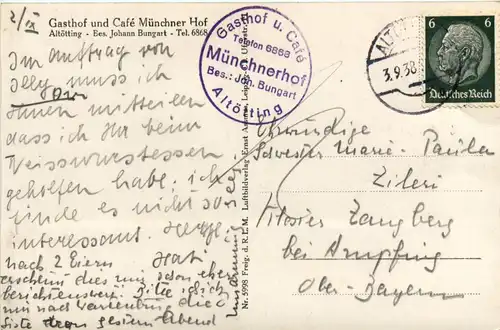 2/IX
Gasthof und Café Münchner Hof
Altötting - Bes. Johann Bungart - Tel. 6868
Im Auftrag von
Olly muss ich
Ihnen mitteilen
dass ich Ihr beim
Weisswurstessen
geholfen habe; ich
finde es nicht so
interessant.
nach 2 Eiern Hat
erschien dies mir schon eher
berichtenswert. Bitte ich
mir nach
gestern Abend
Gasthof u. Café
Telefon 6868
Münchnerhof
Bes.: Joh. Bungart
Altötting
Nr. 5998 Freig. d. R.L.M. Luftbildverlag Ernst
3.9.38
6 6
Deutsches Reich
Ehrwürdige
Schwester Maria-Paula
Zileri
Kloster Zangberg
bei Ampfing
Ober-Bayern